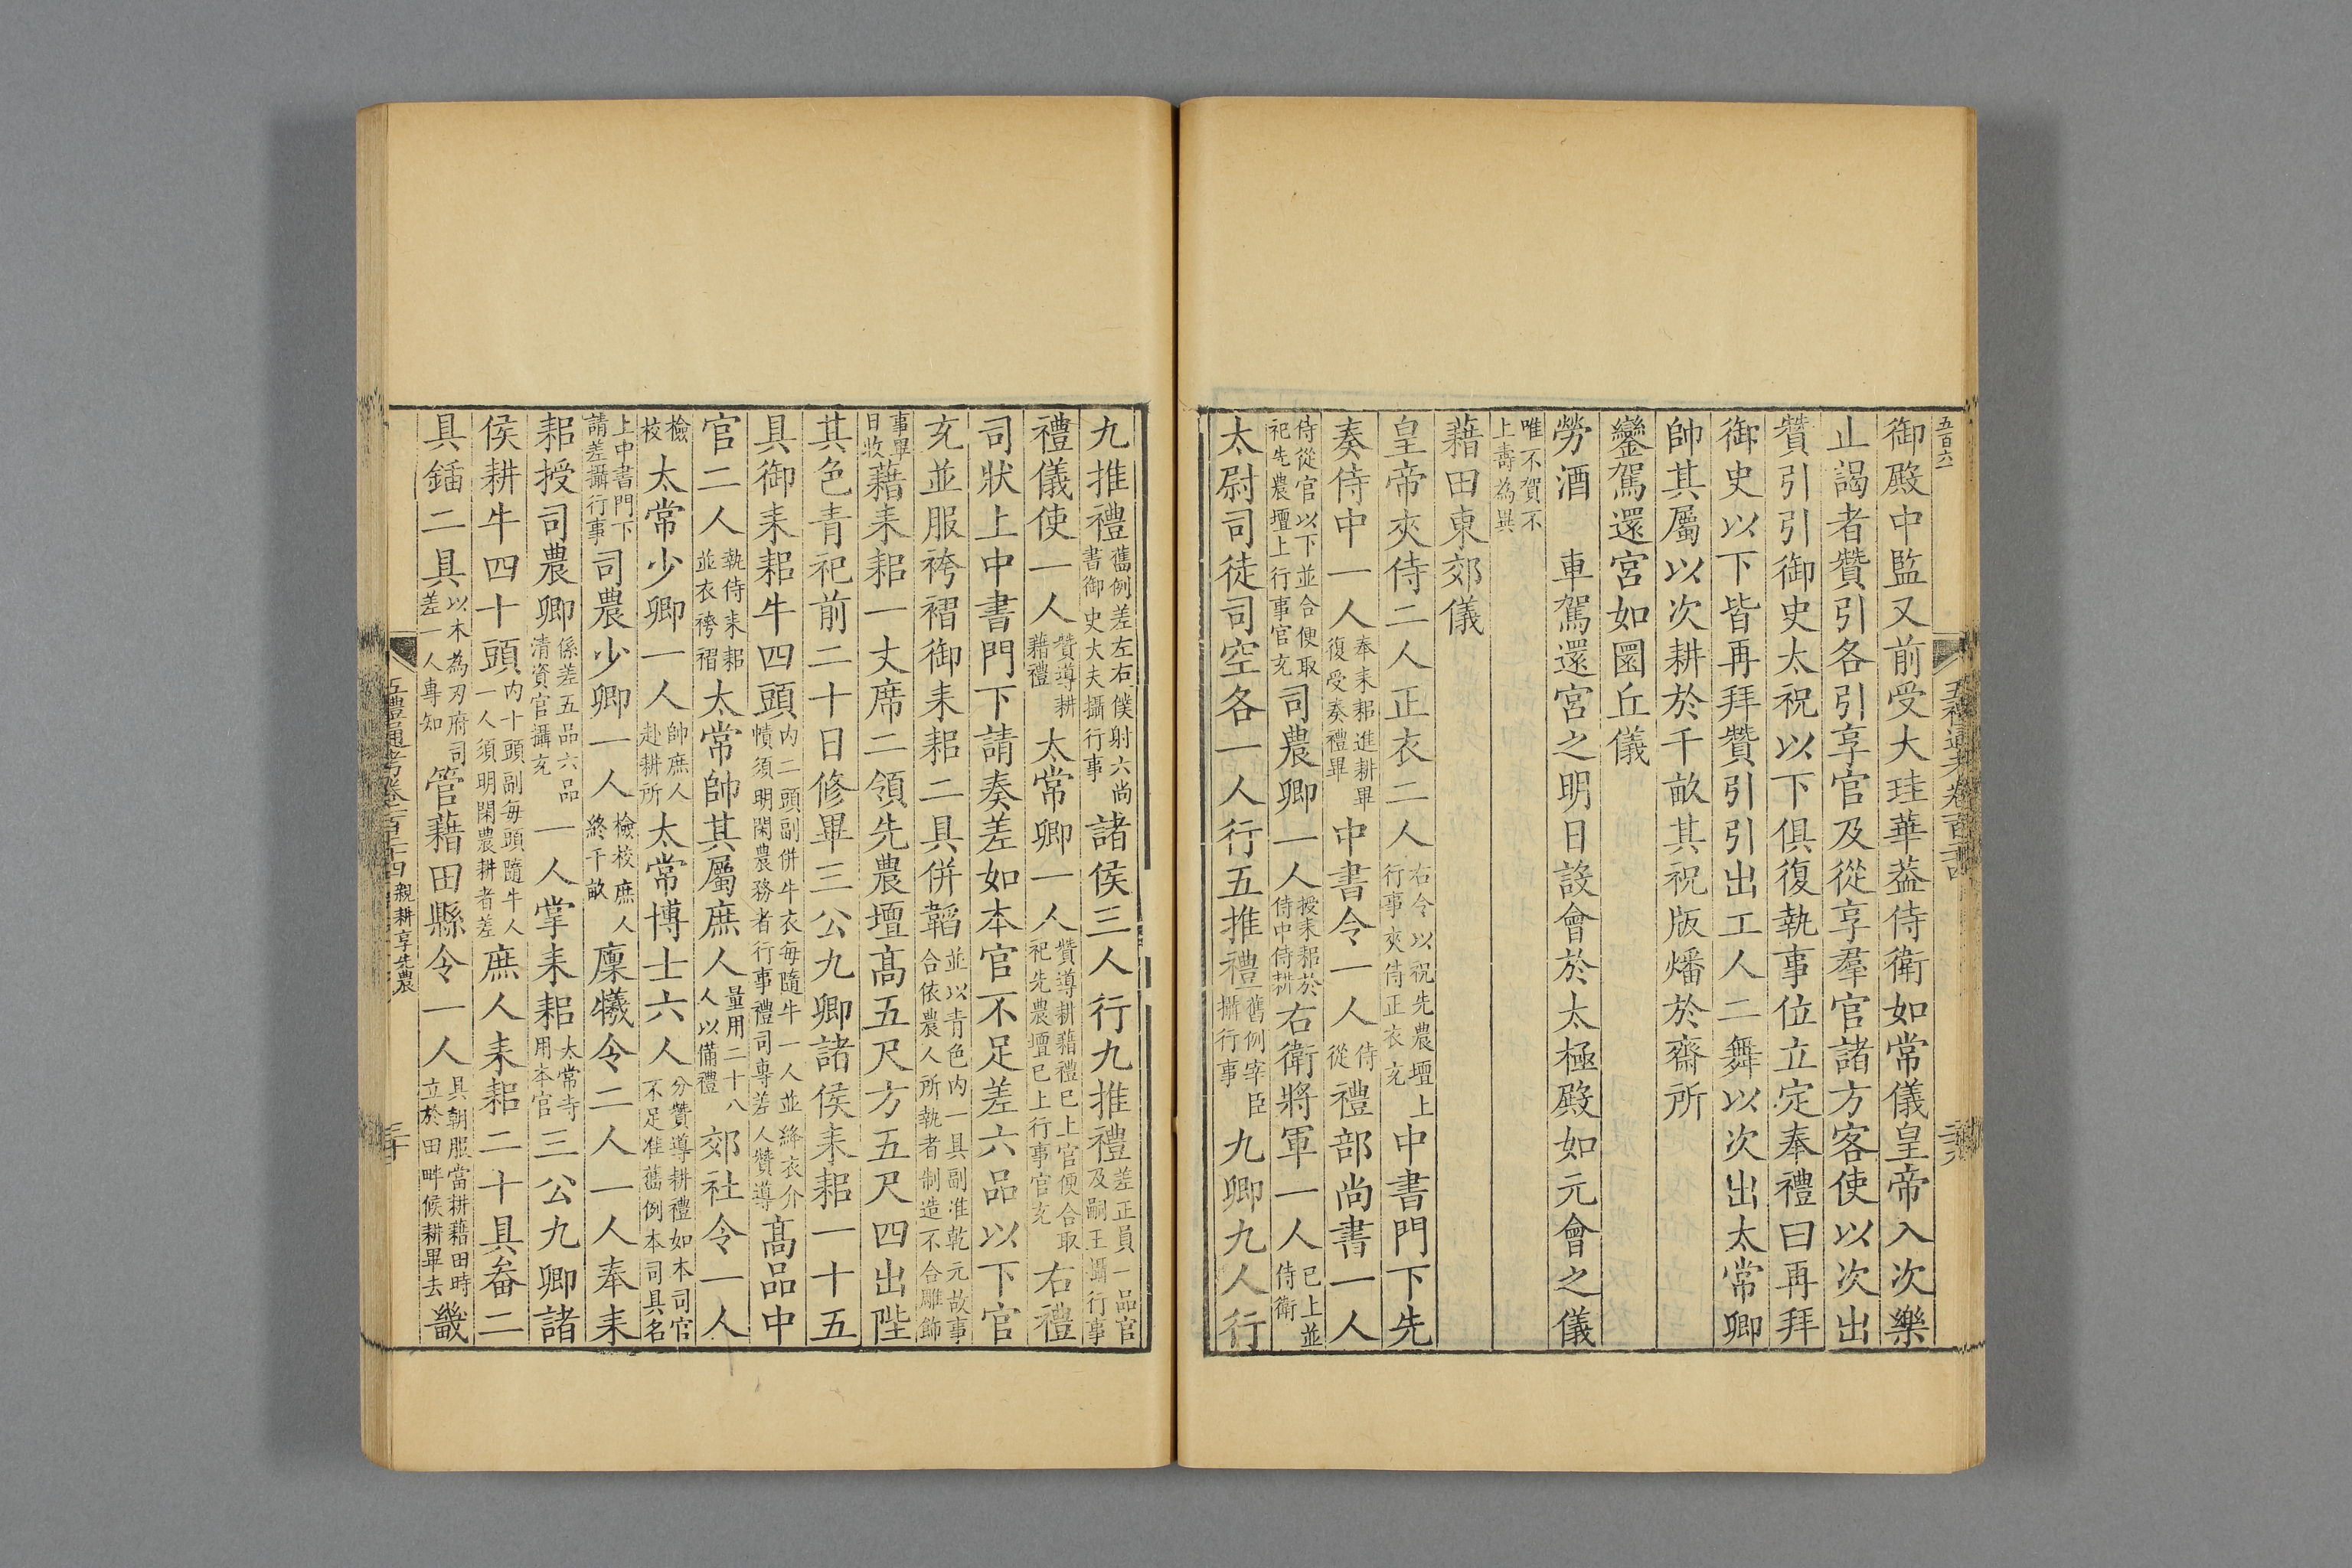 五百六
御殿中監又前受大珪華葢侍衛如常儀皇帝入次樂
止謁者贊引各引享官及從享羣官諸方客使以次出
贊引引御史太祝以下俱復執事位立定奉禮曰再拜
御史以下皆再拜贊引引出工人二舞以次出太常卿
帥其屬以次耕於千畝其祝版燔於齋所
鑾駕還宮如圜丘儀
勞酒　車駕還宮之明日設會於太極殿如元會之儀
唯不賀不上壽為異
藉田東郊儀
皇帝夾侍二人正衣二人右令以祝先農壇上行事夾侍正衣充中書門下先
奏侍中一人奉耒耜進耕畢復受奏禮畢中書令一人侍從禮部尚書一人
侍從官以下並合便取祀先農壇上行事官充司農卿一人授耒耜於侍中侍耕右衛將軍一人已上並侍衛
太尉司徒司空各一人行五推禮舊例宰臣攝行事九卿九人行
九推禮舊例差左右僕射六尚書御史大夫攝行事諸侯三人行九推禮差正員一品官及嗣王攝行事
禮儀使一人贊導耕藉禮太常卿一人贊導耕藉禮已上官便合取祀先農壇已上行事官充右禮
司狀上中書門下請奏差如本官不足差六品以下官
充並服袴褶御耒耜二具併韜並以青色内一具副准乾元故事合依農人所執者制造不合雕飾
事畢日收藉耒耜一丈席二領先農壇高五尺方五尺四出陛
其色青祀前二十日修畢三公九卿諸侯耒耜一十五
具御耒耜牛四頭内二頭副併牛衣每隨牛一人並絳衣介幘須明閑農務者行事禮司專差人贊導高品中
官二人執侍耒耜並衣袴褶太常帥其屬庶人量用二十八人以備禮郊社令一人
檢校太常少卿一人帥庶人赴耕所太常博士六人分贊導耕禮如本司官不足准舊例本司具名
上中書門下請差攝行事司農少卿一人檢校庶人終千畝廩犧令二人一人奉耒
耜授司農卿係差五品六品清資官攝充一人掌耒耜太常寺用本官三公九卿諸
侯耕牛四十頭内十頭副每頭隨牛人一人須明閑農耕者差庶人耒耜二十具畚二
具鍤二具以木為刃府司差一人專知管藉田縣令一人具朝服當耕藉田時立於田畔候耕畢去畿
五禮通考卷一百二十四親耕享先農